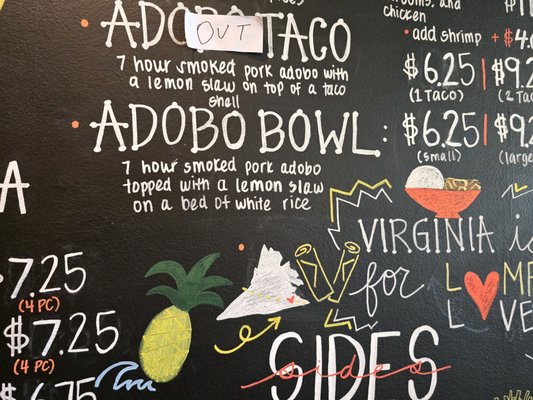 chicken
• add shrimp + $4.
OUT
ADOBO TACO
7 hour smoked pork adobo with
a lemon slaw on top of a taco
shell
$6.25 | $9.2
(1 TACO) (2 Tac
• ADOBO BOWL: $6.25 | $9.2
(small) (large
7 hour smoked pork adobo
topped with a lemon slaw
on a bed of white rice
A
VIRGINIA is
for L
L VE
7.25
(4 PC)
$7.25
(4 PC)
$6.75
SIDES
sides